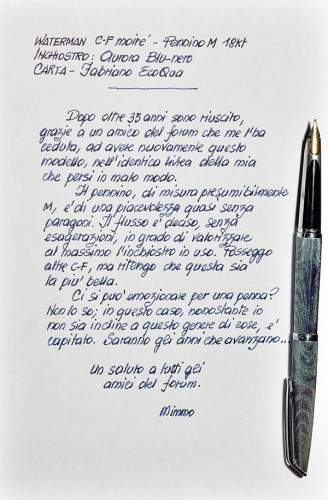 WATERMAN C-F moiré - Pennino M 18Kt
INCHIOSTRO: Aurora Blu-nero
CARTA - Fabriano EcoQua
Dopo oltre 35 anni sono riuscito,
grazie a un amico del forum che me l'ha
ceduta, ad avere nuovamente questo
modello, nell'identica livrea della mia
che persi in malo modo.
Il pennino, di misura presumibilmente
M, e' di una piacevolezza quasi senza
paragoni. Il flusso e' deciso, senza
esagerazioni, in grado di valorizzare
al massimo l'inchiostro in uso. Posseggo
altre C-F, ma ritengo che questa sia
la piu' bella.
Ci si puo' emozionare per una penna?
Non lo so; in questo caso, nonostante io
non sia incline a questo genere di cose, e'
capitato. Saranno gli anni che avanzano...
Un saluto a tutti gli
amici del forum.
Mimmo